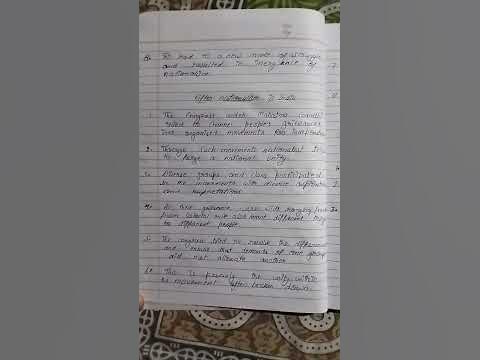 to a new mode of struggle
and resulted in
nationalism
nationalism in India
1. The Congress under Mahatma Gandhi
tried to channel people's grievances
into organised movements for independence
2. Through such movements nationalist tried
to forge a national unity
3. Diverse groups and class participated
in the movements with diverse aspirations
and expectations
4. As their grievances were wide ranging freedom
from colonial rule also meant different things
to different people
5. The congress tried to resolve the differences
and ensure that demands of one group
did not alienate another
6. This is precisely the unity within
the movement often broken down